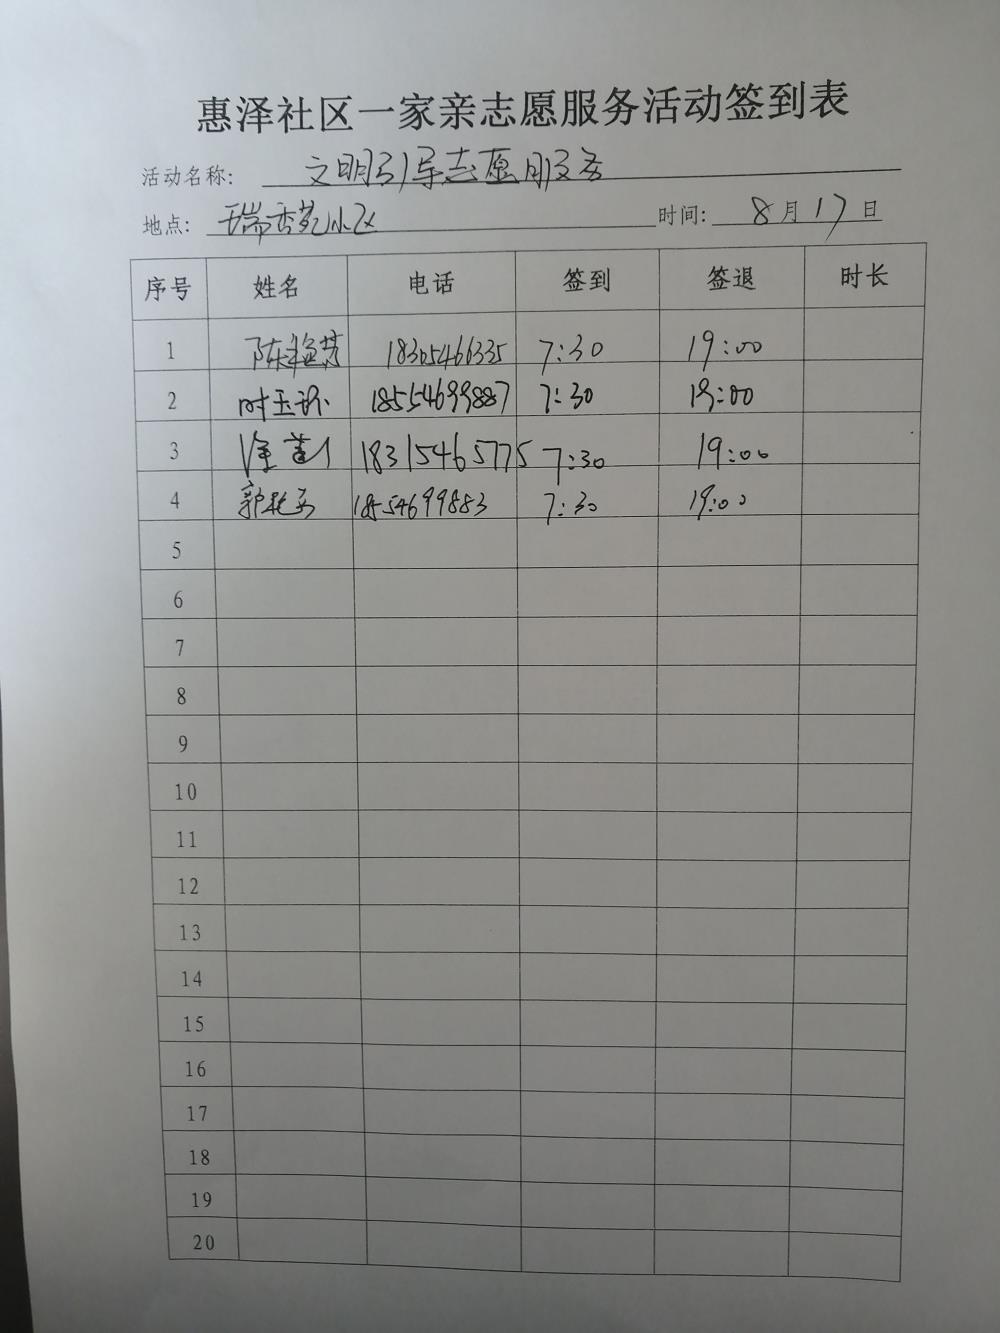 惠泽社区一家亲志愿服务活动签到表
活动名称: 文明引导志愿服务
地点: 瑞香苑小区 时间: 8月17日
序号 姓名 电话 签到 签退 时长
1 陈艳芳 18305466335 7:30 19:00
2 时玉珍 18554699887 7:30 19:00
3 徐 18315465775 7:30 19:00
4 郭 18554699883 7:30 19:00
5
6
7
8
9
10
11
12
13
14
15
16
17
18
19
20